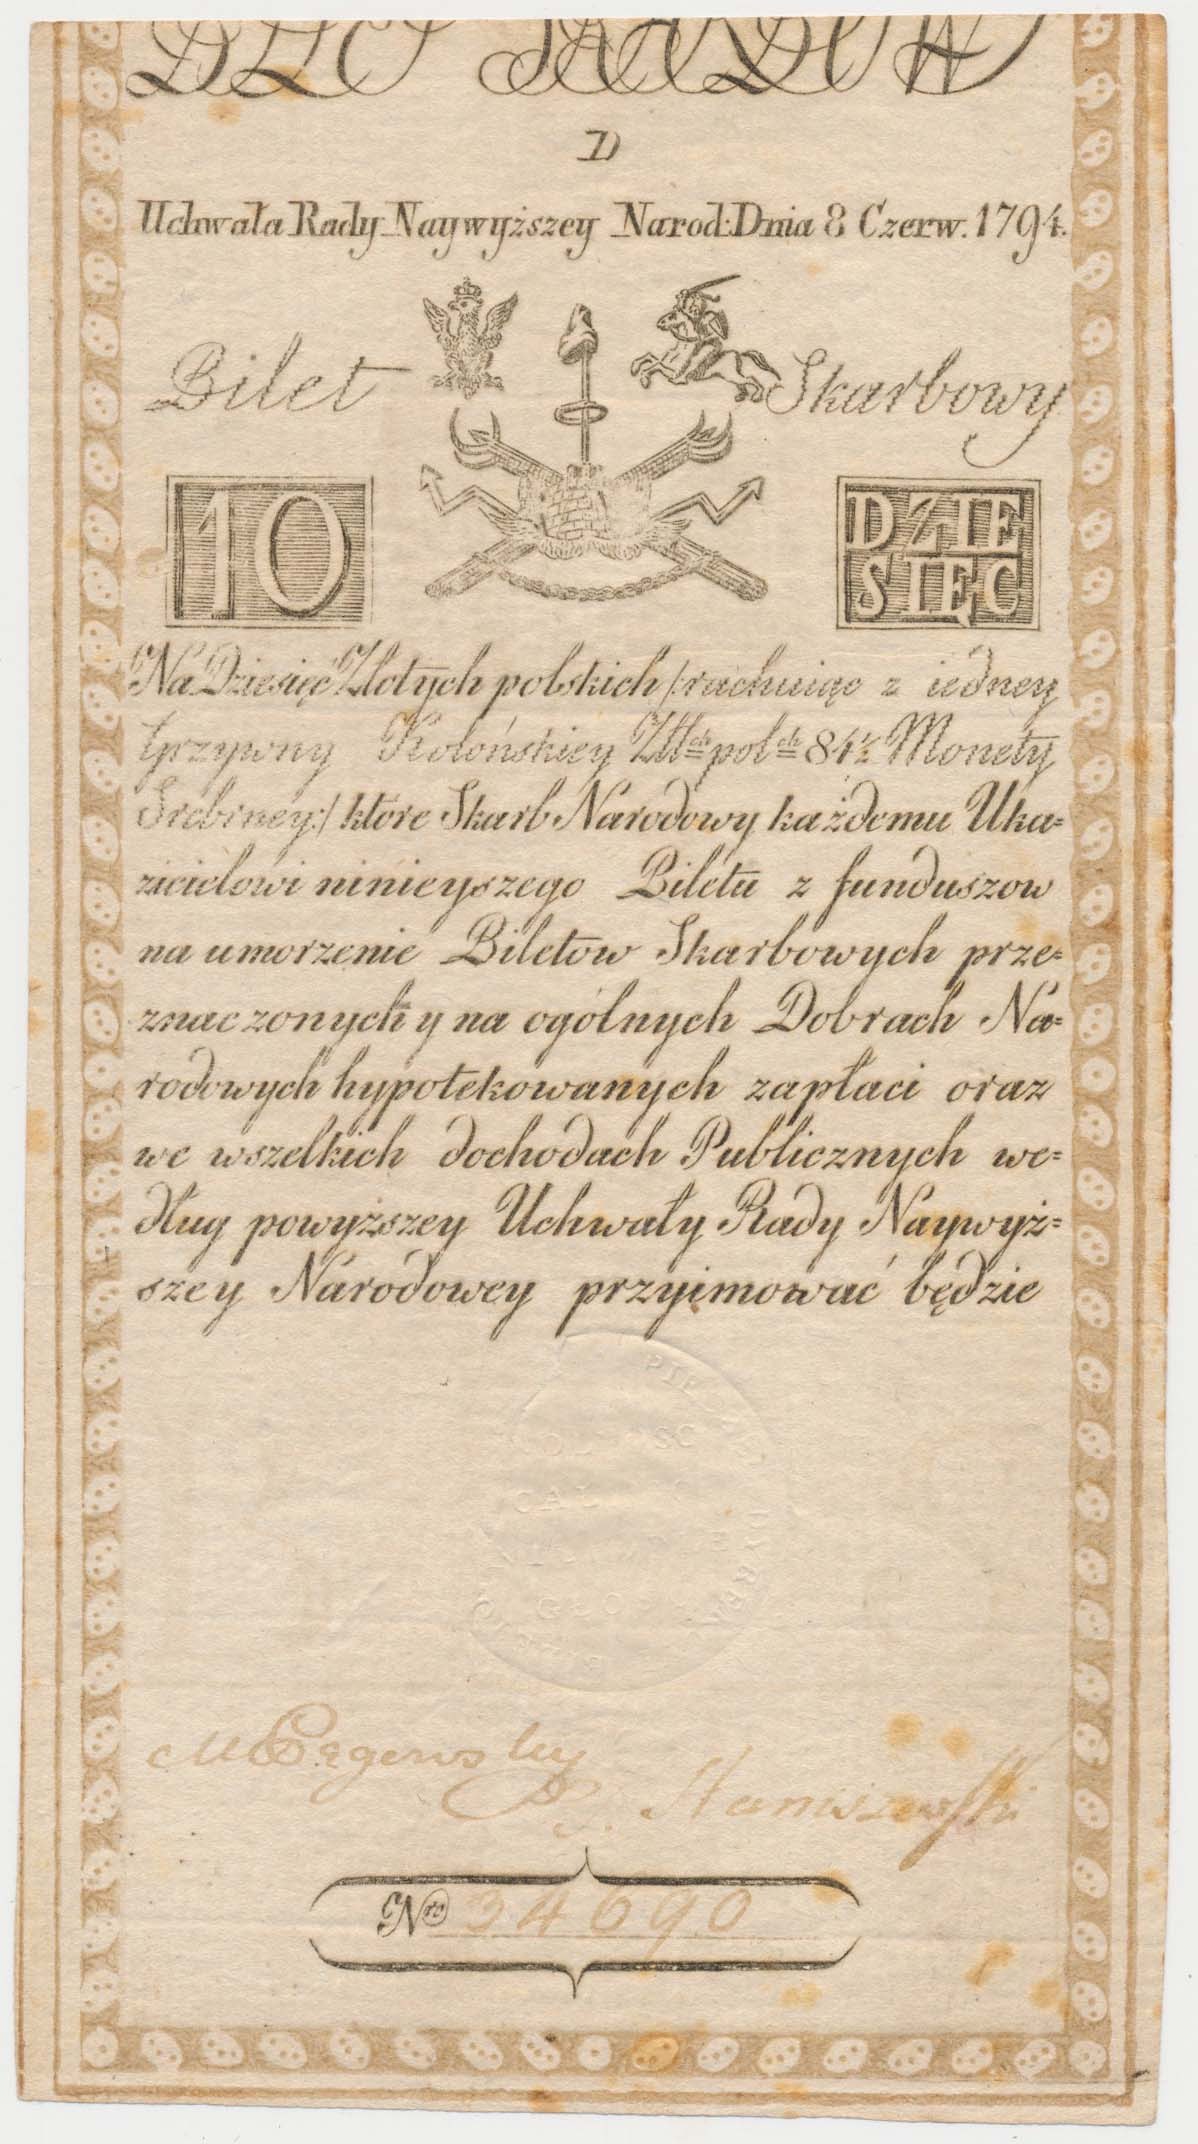 D
Uchwała Rady Naywyższey Narod: Dnia 8 Czerw. 1794.
Bilet Skarbowy
10
DZIE
SIĘC
Na Dziesięć Złotych polskich /:rachuiąc z iedney
Grzywny Kolońskiey Złłch polch 84½ Monety
Srebrney:/ ktore Skarb Narodowy każdemu Uka=
zicielowi ninieyszego Biletu z funduszow
na umorzenie Biletow Skarbowych prze=
znaczonych y na ogólnych Dobrach Na=
rodowych hypotekowanych zapłaci oraz
we wszelkich dochodach Publicznych we=
dług powyższey Uchwały Rady Naywyż=
szey Narodowey przyimować będzie
Nro 34690